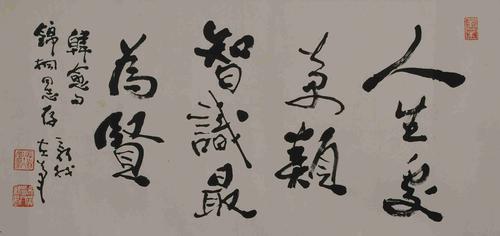 人生處
萬類
智識最
為賢
韓愈句
錦桐同志存